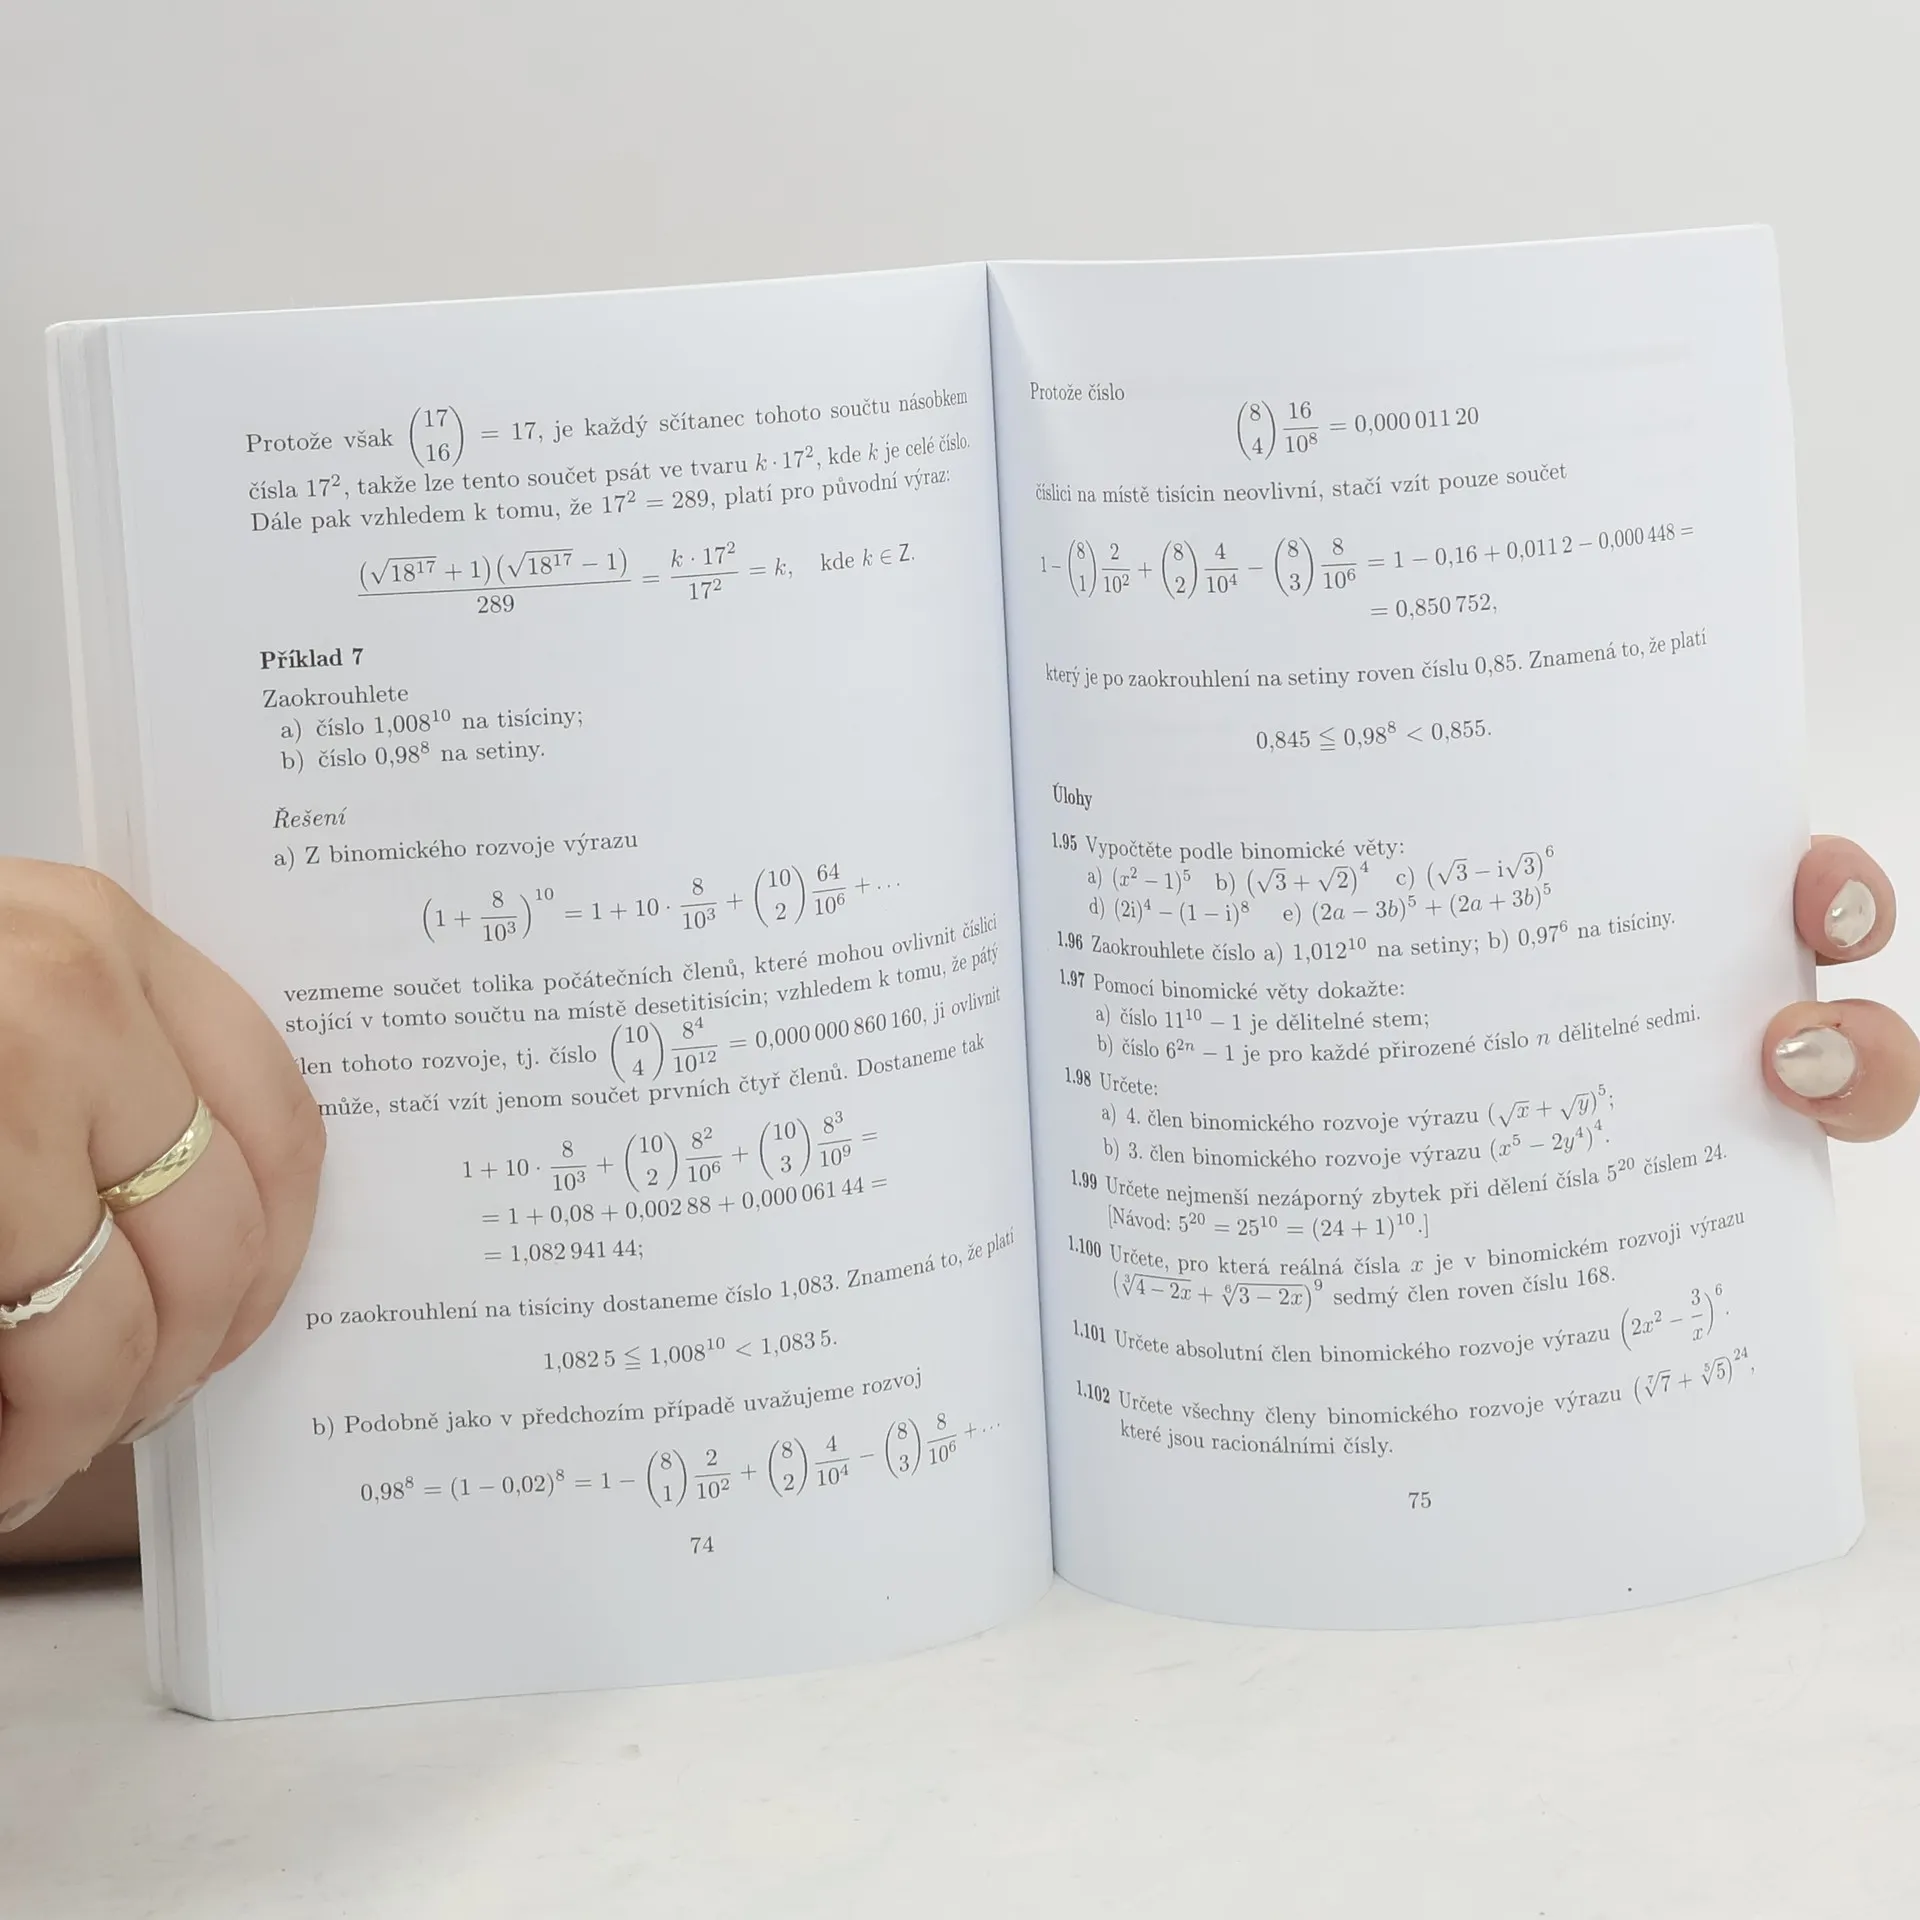 Protože však (17 16) = 17, je každý sčítanec tohoto součtu násobkem
čísla 17², takže lze tento součet psát ve tvaru k · 17², kde k je celé číslo.
Dále pak vzhledem k tomu, že 17² = 289, platí pro původní výraz:
(√18¹⁷ + 1)(√18¹⁷ − 1) / 289 = k · 17² / 17² = k, kde k ∈ Z.
Příklad 7
Zaokrouhlete
a) číslo 1,008¹⁰ na tisíciny;
b) číslo 0,98⁸ na setiny.
Řešení
a) Z binomického rozvoje výrazu
(1 + 8/10³)¹⁰ = 1 + 10 · 8/10³ + (10 2) 64/10⁶ + ...
vezmeme součet tolika počátečních členů, které mohou ovlivnit číslici
stojící v tomto součtu na místě desetitisícin; vzhledem k tomu, že pátý
len tohoto rozvoje, tj. číslo (10 4) 8⁴/10¹² = 0,000 000 860 160, ji ovlivnit
může, stačí vzít jenom součet prvních čtyř členů. Dostaneme tak
1 + 10 · 8/10³ + (10 2) 8²/10⁶ + (10 3) 8³/10⁹ =
= 1 + 0,08 + 0,002 88 + 0,000 061 44 =
= 1,082 941 44;
po zaokrouhlení na tisíciny dostaneme číslo 1,083. Znamená to, že platí
1,082 5 ≦ 1,008¹⁰ < 1,083 5.
b) Podobně jako v předchozím případě uvažujeme rozvoj
0,98⁸ = (1 − 0,02)⁸ = 1 − (8 1) 2/10² + (8 2) 4/10⁴ − (8 3) 8/10⁶ + ...
74
Protože číslo
(8 4) 16/10⁸ = 0,000 011 20
číslici na místě tisícin neovlivní, stačí vzít pouze součet
1 − (8 1) 2/10² + (8 2) 4/10⁴ − (8 3) 8/10⁶ = 1 − 0,16 + 0,011 2 − 0,000 448 =
= 0,850 752,
který je po zaokrouhlení na setiny roven číslu 0,85. Znamená to, že platí
0,845 ≦ 0,98⁸ < 0,855.
Úlohy
1.95 Vypočtěte podle binomické věty:
a) (x² − 1)⁵ b) (√3 + √2)⁴ c) (√3 − i√3)⁶
d) (2i)⁴ − (1 − i)⁸ e) (2a − 3b)⁵ + (2a + 3b)⁵
1.96 Zaokrouhlete číslo a) 1,012¹⁰ na setiny; b) 0,97⁶ na tisíciny.
1.97 Pomocí binomické věty dokažte:
a) číslo 11¹⁰ − 1 je dělitelné stem;
b) číslo 6²ⁿ − 1 je pro každé přirozené číslo n dělitelné sedmi.
1.98 Určete:
a) 4. člen binomického rozvoje výrazu (√x + √y)⁵;
b) 3. člen binomického rozvoje výrazu (x⁵ − 2y⁴)⁴.
1.99 Určete nejmenší nezáporný zbytek při dělení čísla 5²⁰ číslem 24.
[Návod: 5²⁰ = 25¹⁰ = (24 + 1)¹⁰.]
1.100 Určete, pro která reálná čísla x je v binomickém rozvoji výrazu
(∛4 − 2x + ⁶√3 − 2x)⁹ sedmý člen roven číslu 168.
1.101 Určete absolutní člen binomického rozvoje výrazu (2x² − 3/x)⁶.
1.102 Určete všechny členy binomického rozvoje výrazu (⁷√7 + ⁵√5)²⁴,
které jsou racionálními čísly.
75